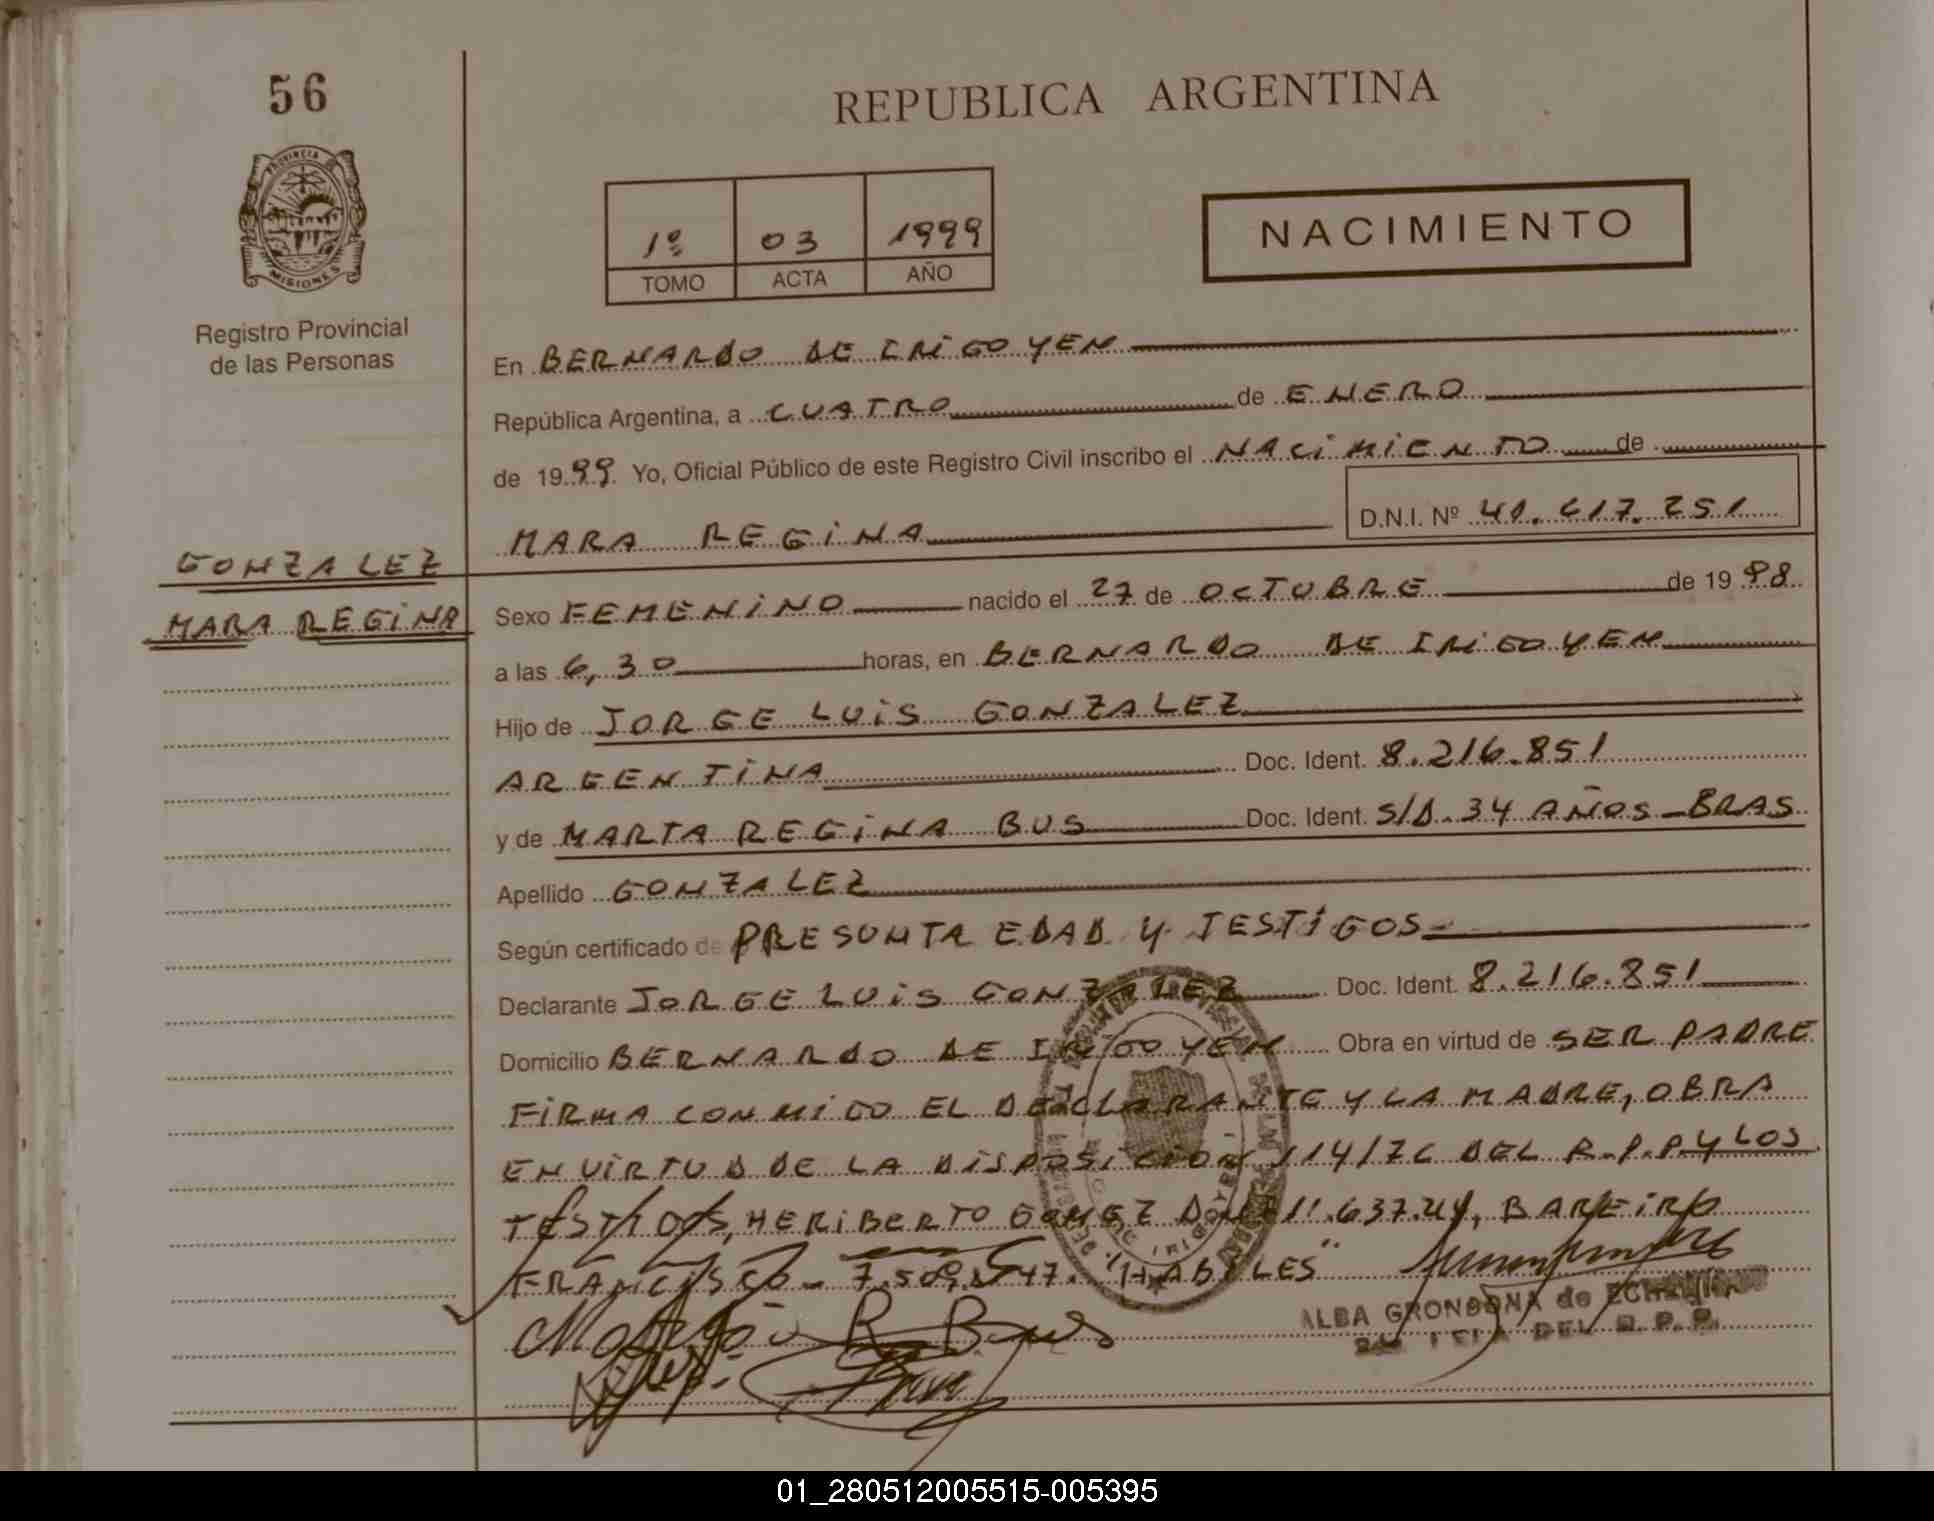 56
REPUBLICA ARGENTINA
PROVINCIA
MISIONES
Registro Provincial
de las Personas
1º 03 1999
TOMO ACTA AÑO
NACIMIENTO
En BERNARDO DE IRIGOYEN
República Argentina, a CUATRO de ENERO
de 1999 Yo, Oficial Público de este Registro Civil inscribo el NACIMIENTO de
MARA REGINA D.N.I. Nº 41.417.251
GONZALEZ
MARA REGINA
Sexo FEMENINO nacido el 27 de OCTUBRE de 1998
a las 6,30 horas, en BERNARDO DE IRIGOYEN
Hijo de JORGE LUIS GONZALEZ
ARGENTINA Doc. Ident. 8.216.851
y de MARTA REGINA BUS Doc. Ident. S/D. 34 AÑOS - BRAS
Apellido GONZALEZ
Según certificado de PRESUNTA EDAD Y TESTIGOS
Declarante JORGE LUIS GONZALEZ Doc. Ident. 8.216.851
Domicilio BERNARDO DE IRIGOYEN Obra en virtud de SER PADRE
FIRMA CONMIGO EL DECLARANTE Y LA MADRE, OBRA
EN VIRTUD DE LA DISPOSICION 114/76 DEL R.P.P. Y LOS
TESTIGOS, HERIBERTO GOMEZ DNI BAREIRO
FRANCISCO - "HABILES"
ALBA GRONDONA de
DEL R. P. P.
01_280512005515-005395